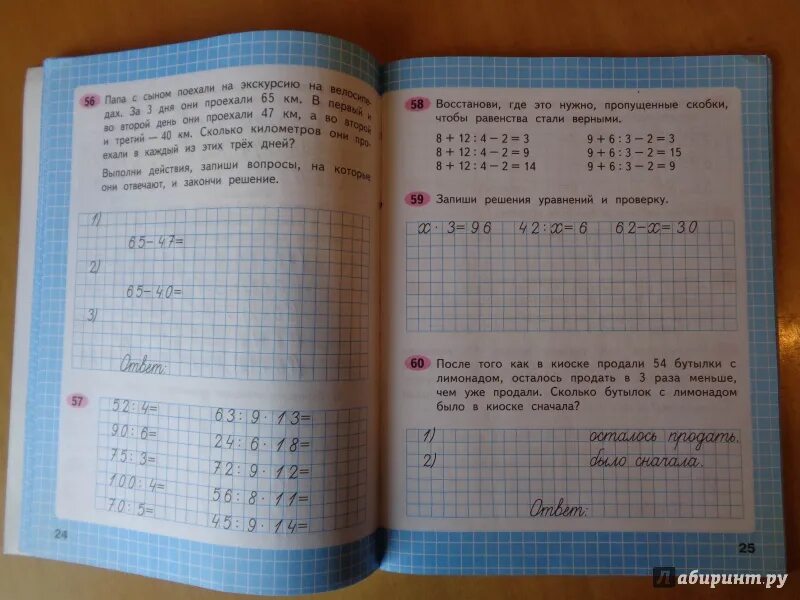 56 Папа с сыном поехали на экскурсию на велосипе-
дах. За 3 дня они проехали 65 км. В первый и
во второй день они проехали 47 км, а во второй
и третий — 40 км. Сколько километров они про-
ехали в каждый из этих трёх дней?
Выполни действия, запиши вопросы, на которые
они отвечают, и закончи решение.
1)
65-47=
2)
65-40=
3)
Ответ:
57
52:4= 63:9·13=
90:6= 24:6·18=
75:3= 72:9·12=
100:4= 56:8·11=
70:5= 45:9·14=
24
58 Восстанови, где это нужно, пропущенные скобки,
чтобы равенства стали верными.
8 + 12 : 4 – 2 = 3 9 + 6 : 3 – 2 = 3
8 + 12 : 4 – 2 = 9 9 + 6 : 3 – 2 = 15
8 + 12 : 4 – 2 = 14 9 + 6 : 3 – 2 = 9
59 Запиши решения уравнений и проверку.
x·3=96 42:x=6 62-x=30
60 После того как в киоске продали 54 бутылки с
лимонадом, осталось продать в 3 раза меньше,
чем уже продали. Сколько бутылок с лимонадом
было в киоске сначала?
1) осталось продать.
2) было сначала.
Ответ:
25
Лабиринт.ру